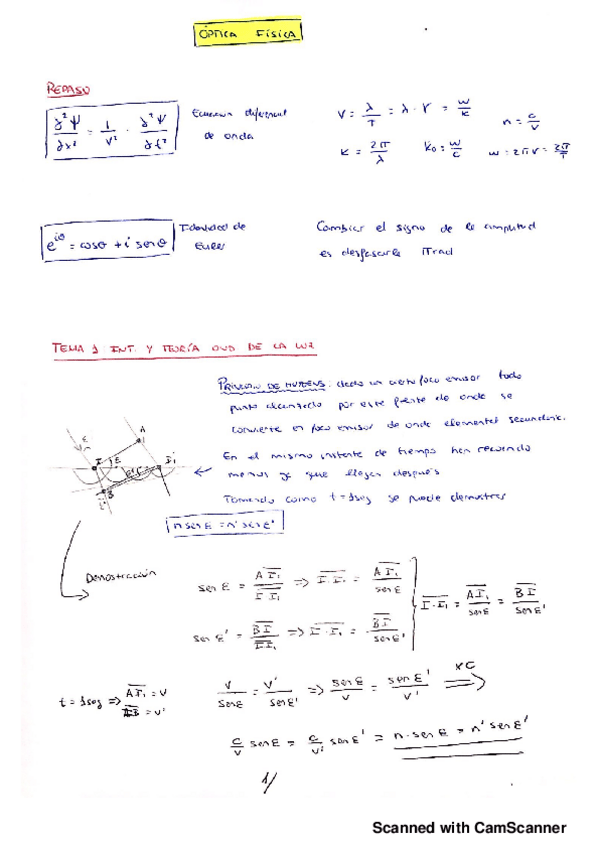 ÓPTICA FÍSICA
REPASO
∂²Ψ/∂x² = 1/v² · ∂²Ψ/∂t²
Ecuación diferencial
de onda
v = λ/T = λ·ν = w/k
n = c/v
k = 2π/λ
k₀ = w/c
w = 2πν = 2π/T
e^iθ = cosθ + i senθ
Identidad de
Euler
Cambiar el signo de la amplitud
es desfasarla π rad
TEMA 1 INT. Y TEORÍA OND DE LA LUZ
PRINCIPIO DE HUYGENS: dado un cierto foco emisor todo
punto alcanzado por este frente de onda se
convierte en foco emisor de onda elemental secundaria.
En el mismo instante de tiempo han recorrido
menos ya que llegan después
Tomando como t = 1seg se puede demostrar
n sen ε = n' sen ε'
A
I
I₁
B
ε
Demostración
sen ε = AI₁/II₁ ⇒ I·I₁ = AI₁/sen ε
sen ε' = BI/II₁ ⇒ I·I₁ = BI/sen ε'
I·I₁ = AI₁/sen ε = BI/sen ε'
t = 1seg ⇒ AI₁ = v
IB = v'
v/sen ε = v'/sen ε' ⇒ sen ε/v = sen ε'/v' ⇒ xc
c/v sen ε = c/v' sen ε' = n·sen ε = n' sen ε'
1/
Scanned with CamScanner